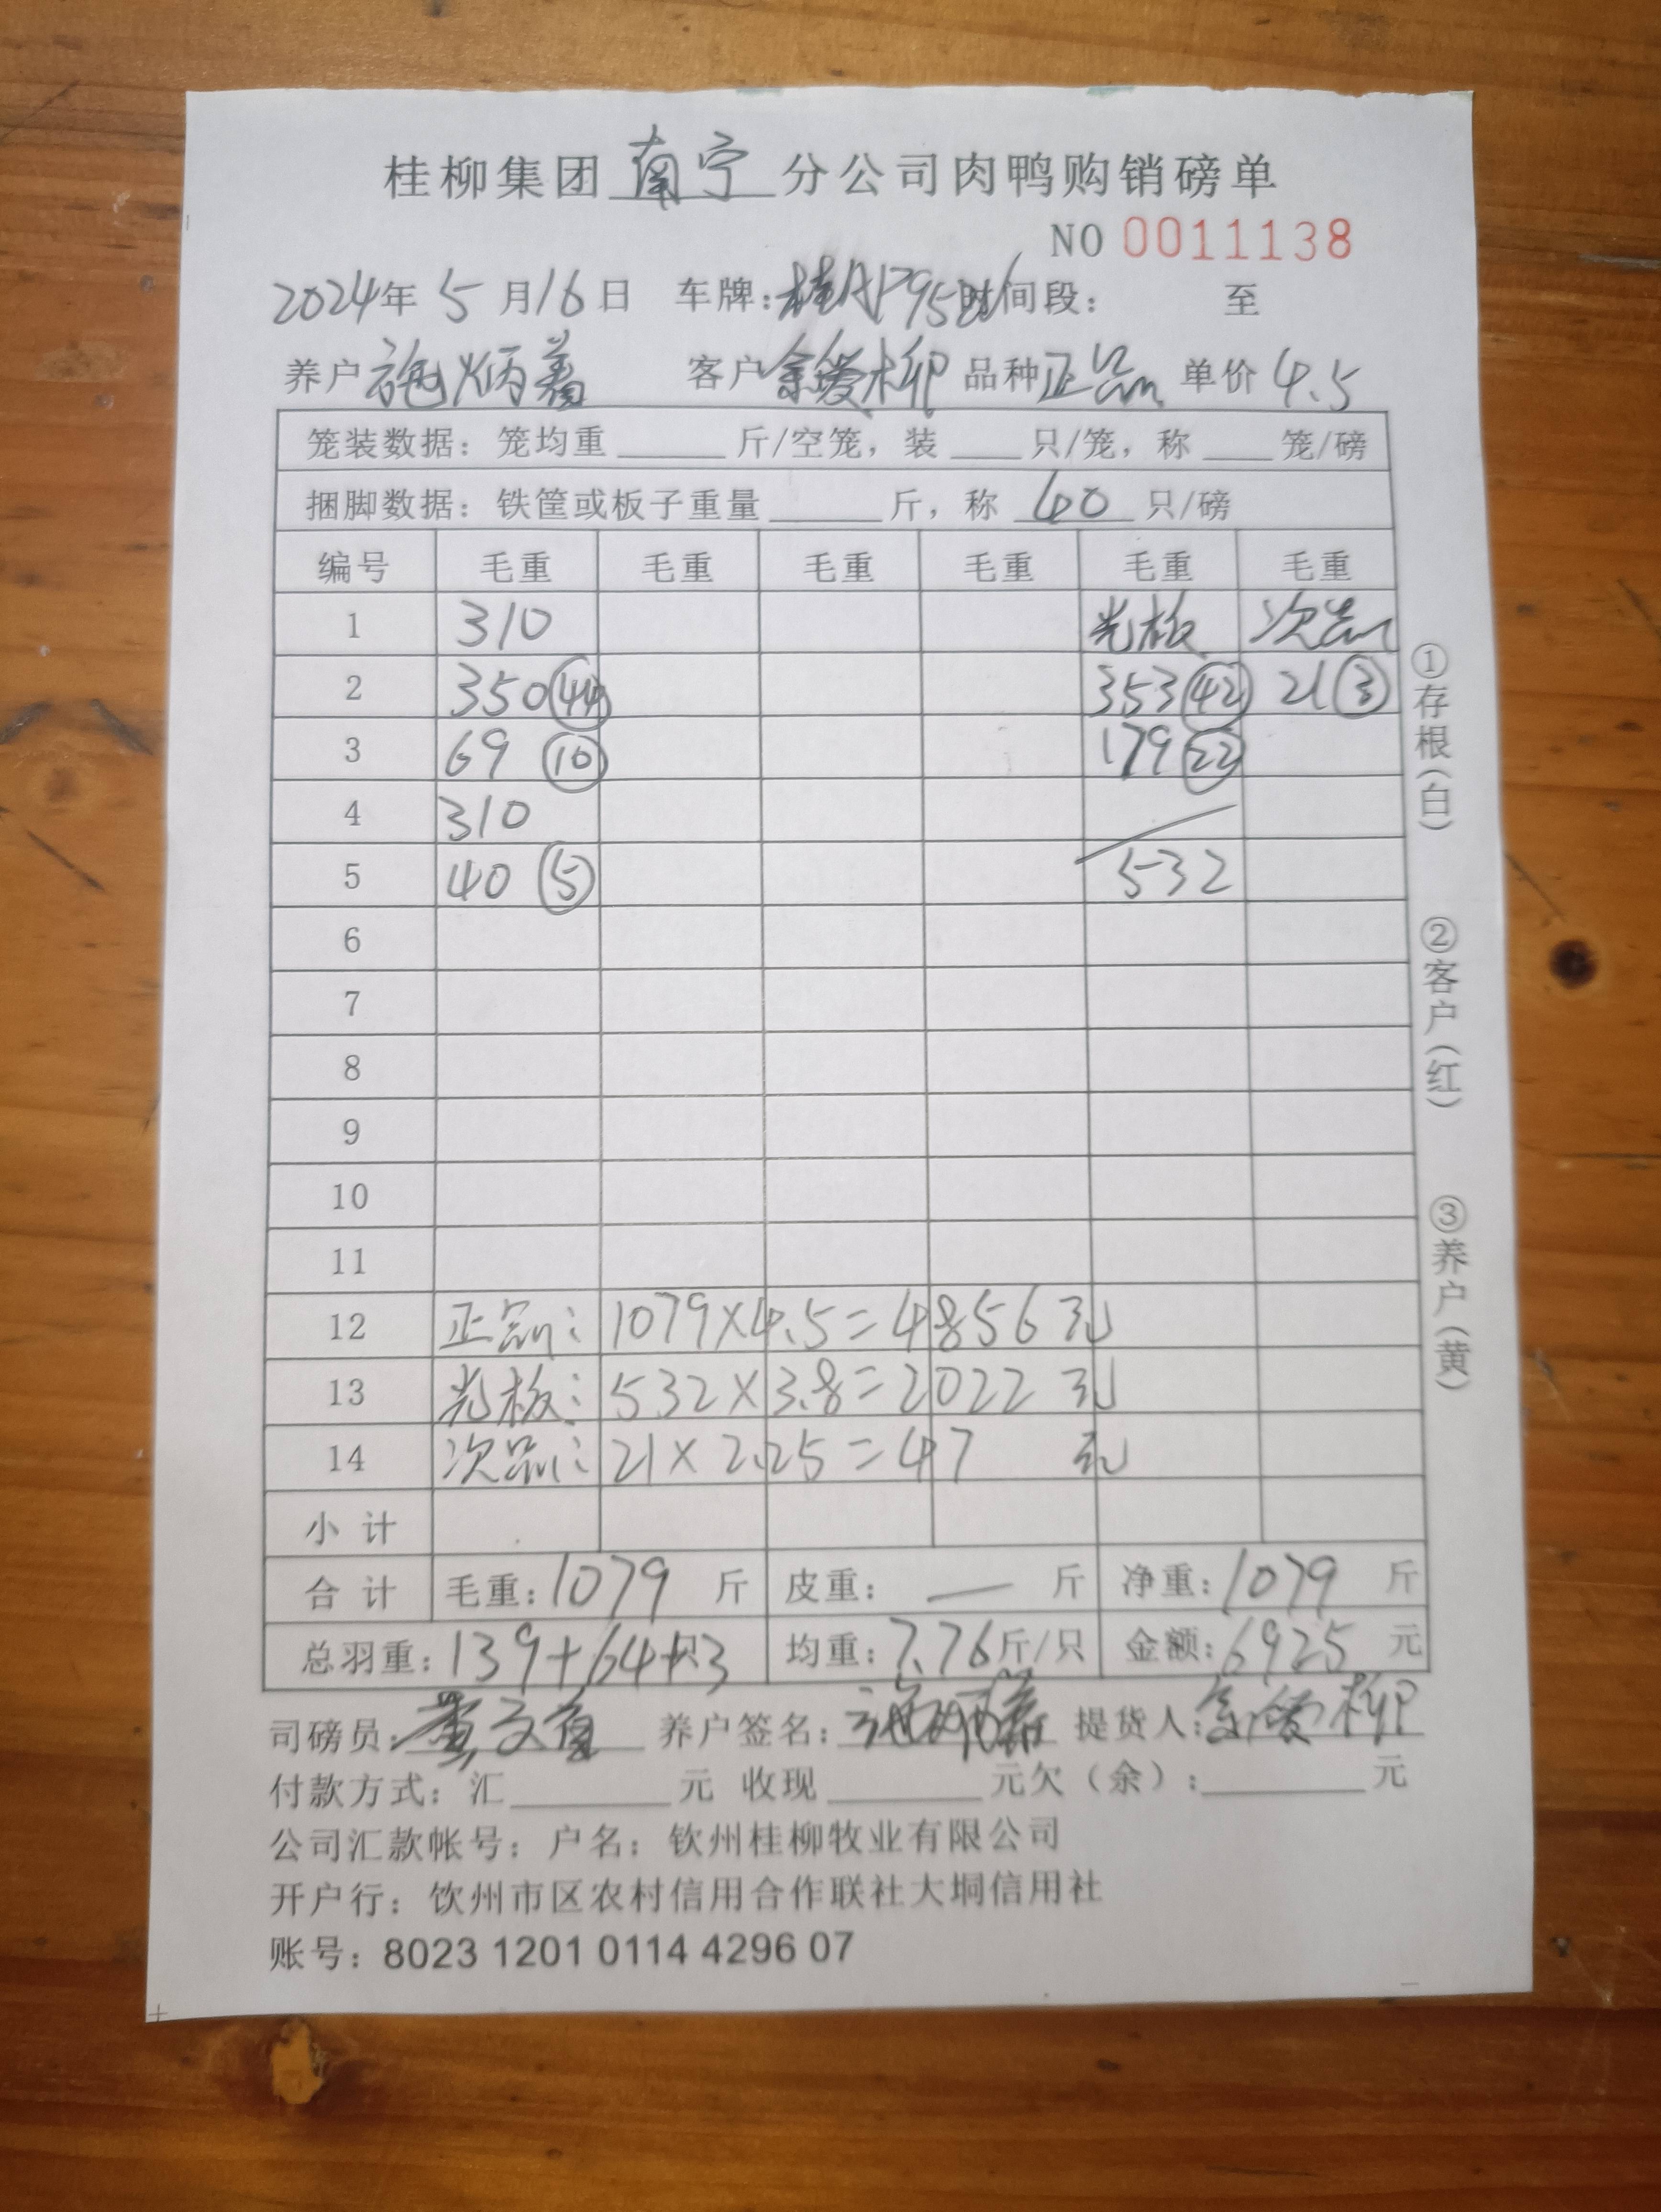 桂柳集团南宁分公司肉鸭购销磅单
NO 0011138
2024年 5 月16日 车牌: 时间段: 至
养户 施炳 客户 余爱柳 品种 正品 单价 4.5
笼装数据: 笼均重 斤/空笼, 装 只/笼, 称 笼/磅
捆脚数据: 铁筐或板子重量 斤, 称 40 只/磅
编号 毛重 毛重 毛重 毛重 毛重 毛重
1 310 光板 次品
2 350 44 353 42 21 3
3 69 10 179 22
4 310
5 40 5 532
6
7
8
9
10
11
12 正品: 1079×4.5=4856 元
13 光板: 532×3.8=2022 元
14 次品: 21×2.25=47 元
小 计
合 计 毛重: 1079 斤 皮重: — 斤 净重: 1079 斤
总羽重: 139+64+3 只 均重: 7.76斤/只 金额: 6925 元
司磅员: 黄文 养户签名: 施炳 提货人: 余爱柳
付款方式: 汇 元 收现 元欠(余): 元
公司汇款帐号: 户名: 钦州桂柳牧业有限公司
开户行: 钦州市区农村信用合作联社大垌信用社
账号: 8023 1201 0114 4296 07
①存根(白)
②客户(红)
③养户(黄)